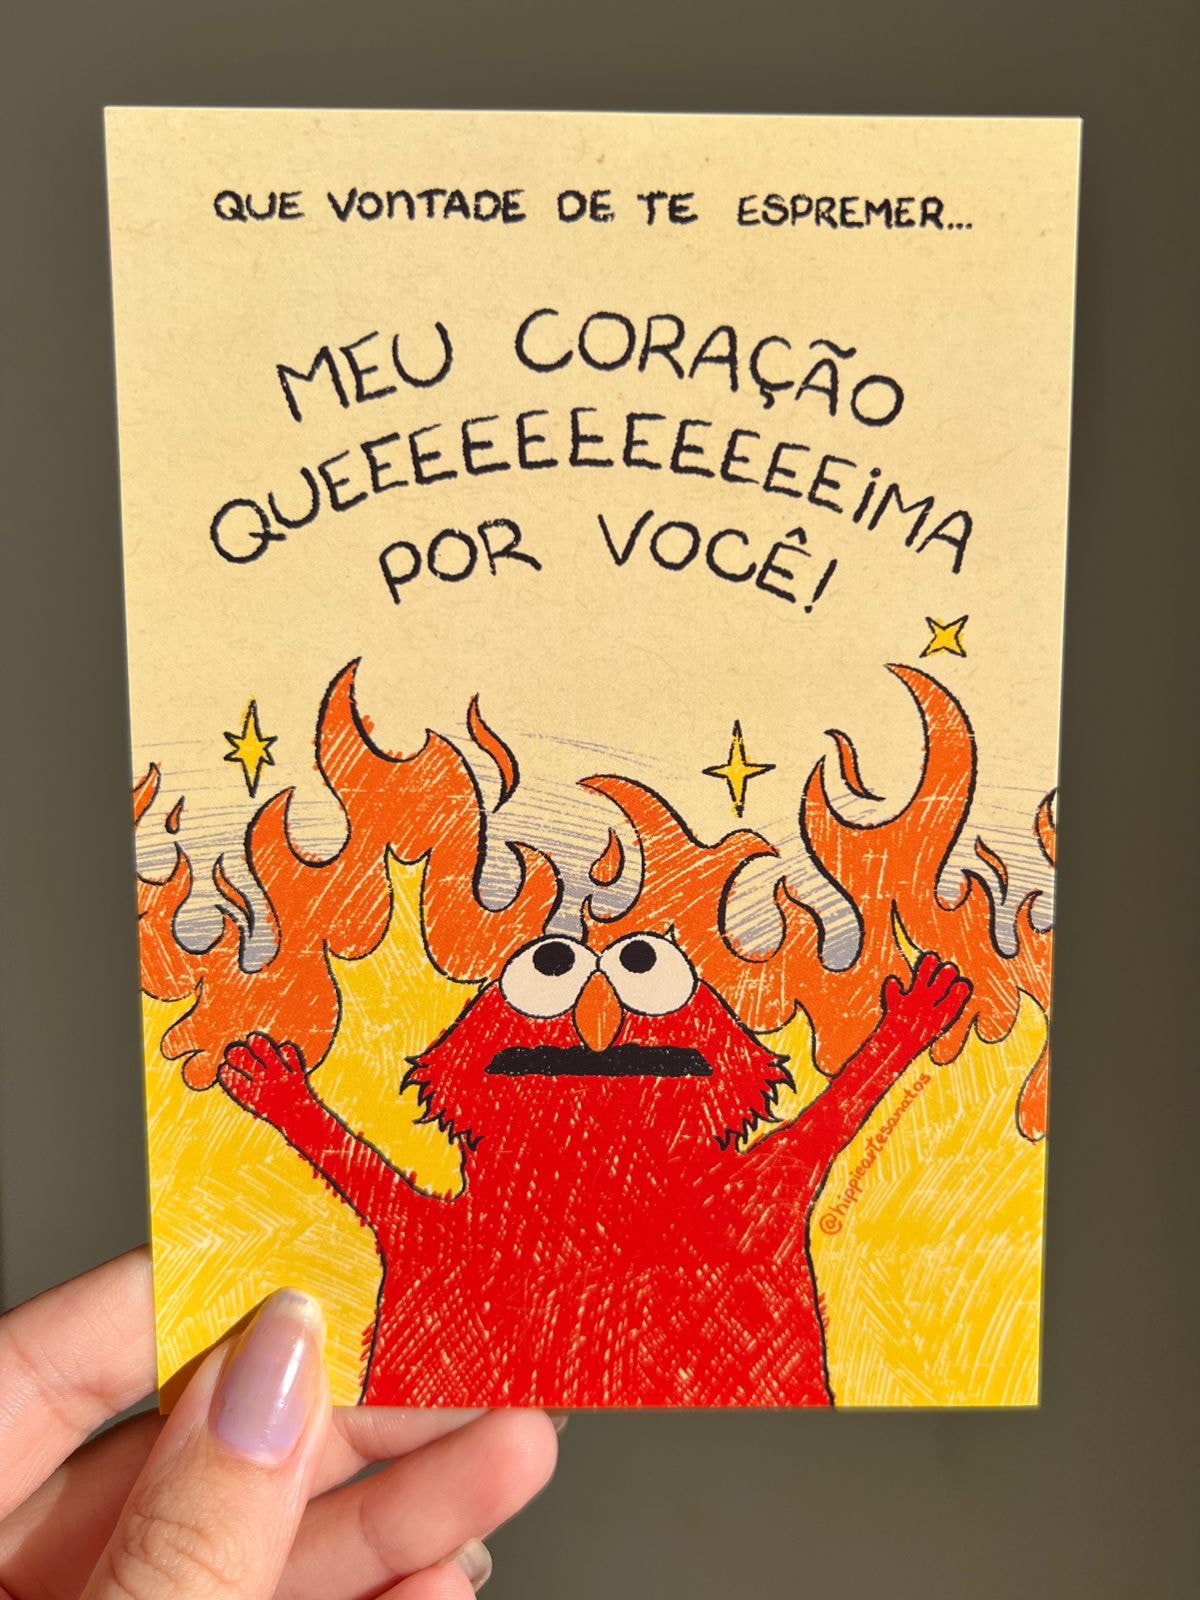 QUE VONTADE DE TE ESPREMER...
MEU CORAÇÃO
QUEEEEEEEEEEEEiMA
POR VOCÊ!
@hippieartesanatos